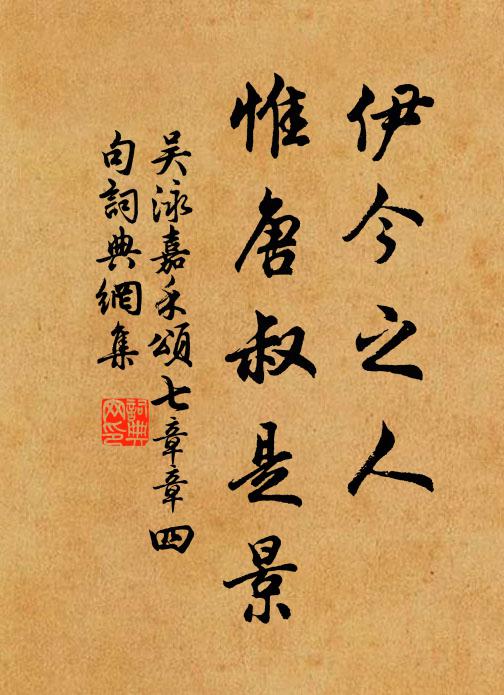 伊今之人
惟唐叔是景
吴泳嘉禾頌七章章四
句詞典網集
詞典
网印